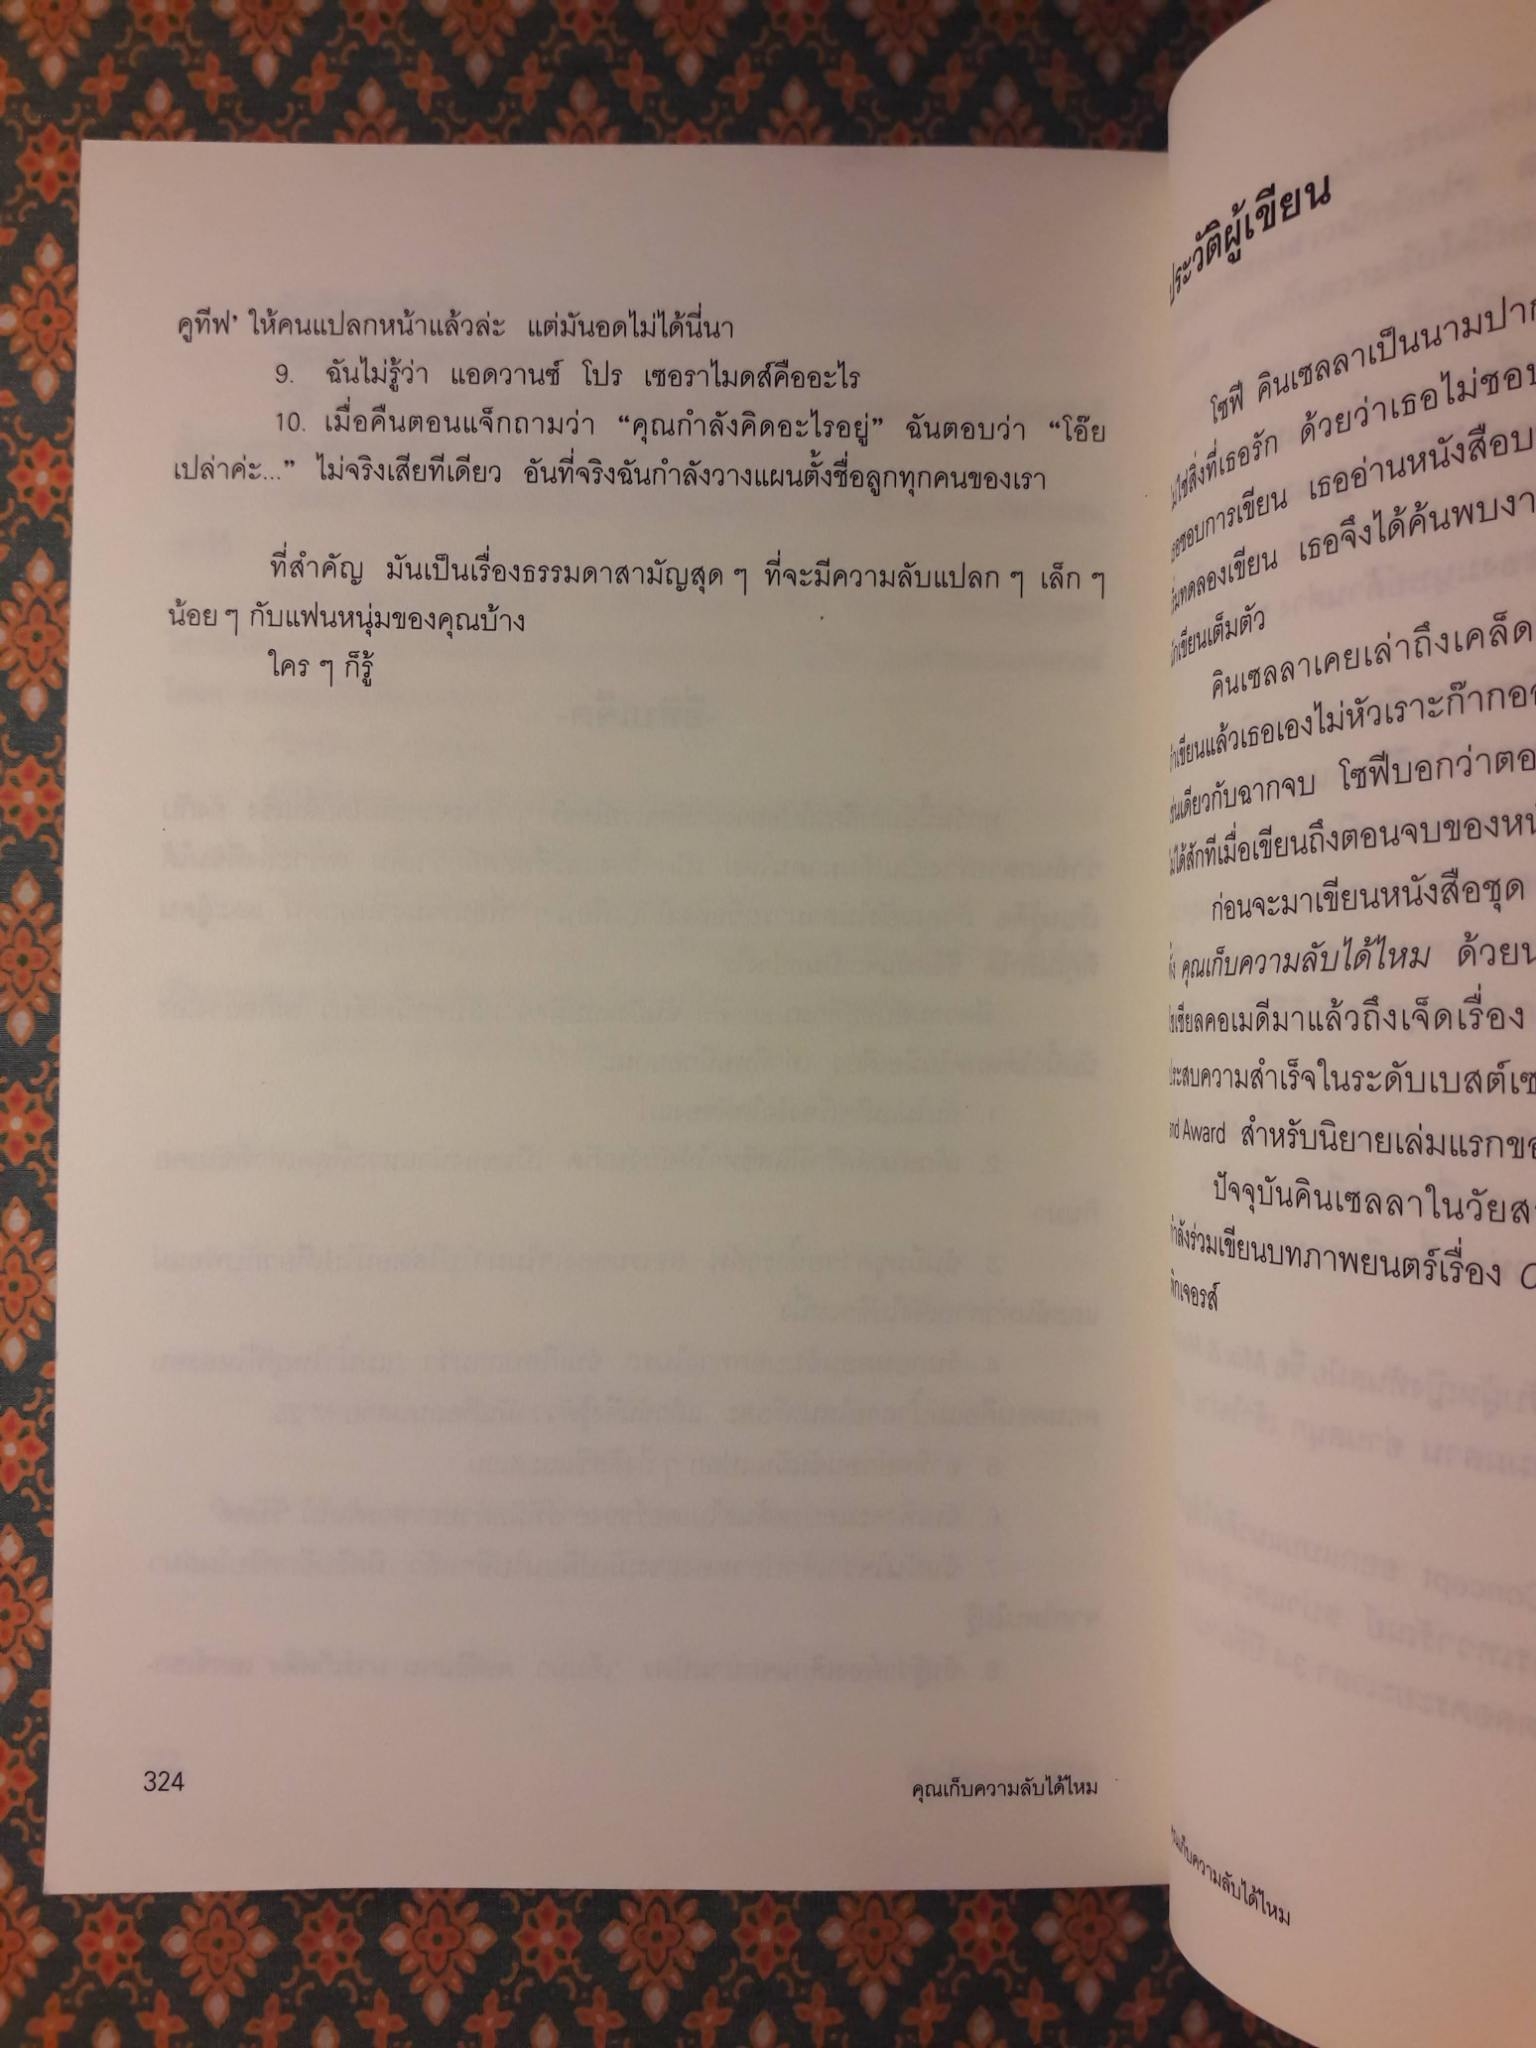 คูทีฟ’ ให้คนแปลกหน้าแล้วล่ะ แต่มันอดไม่ได้นี่นา
9. ฉันไม่รู้ว่า แอดวานซ์ โปร เซอราไมดส์คืออะไร
10. เมื่อคืนตอนแจ็กถามว่า “คุณกำลังคิดอะไรอยู่” ฉันตอบว่า “โอ๊ย
เปล่าค่ะ...” ไม่จริงเสียทีเดียว อันที่จริงฉันกำลังวางแผนตั้งชื่อลูกทุกคนของเรา
ที่สำคัญ มันเป็นเรื่องธรรมดาสามัญสุด ๆ ที่จะมีความลับแปลก ๆ เล็ก ๆ
น้อย ๆ กับแฟนหนุ่มของคุณบ้าง
ใคร ๆ ก็รู้
324
คุณเก็บความลับได้ไหม
ประวัติผู้เขียน
โซฟี คินเซลลาเป็นนามปาก
สิ่งที่เธอรัก ด้วยว่าเธอไม่ชอบ
ชอบการเขียน เธออ่านหนังสือบ
ทดลองเขียน เธอจึงได้ค้นพบงา
เขียนเต็มตัว
คินเซลลาเคยเล่าถึงเคล็ด
เขียนแล้วเธอเองไม่หัวเราะก๊ากออ
เช่นเดียวกับฉากจบ โซฟีบอกว่าตอ
ไม่ได้สักทีเมื่อเขียนถึงตอนจบของหน
ก่อนจะมาเขียนหนังสือชุด
คุณเก็บความลับได้ไหม ด้วยน
คอเมดีมาแล้วถึงเจ็ดเรื่อง
ประสบความสำเร็จในระดับเบสต์เซ
nd Award สำหรับนิยายเล่มแรกขอ
ปัจจุบันคินเซลลาในวัยสา
กำลังร่วมเขียนบทภาพยนตร์เรื่อง
พิกเจอรส์
คุณเก็บความลับได้ไหม